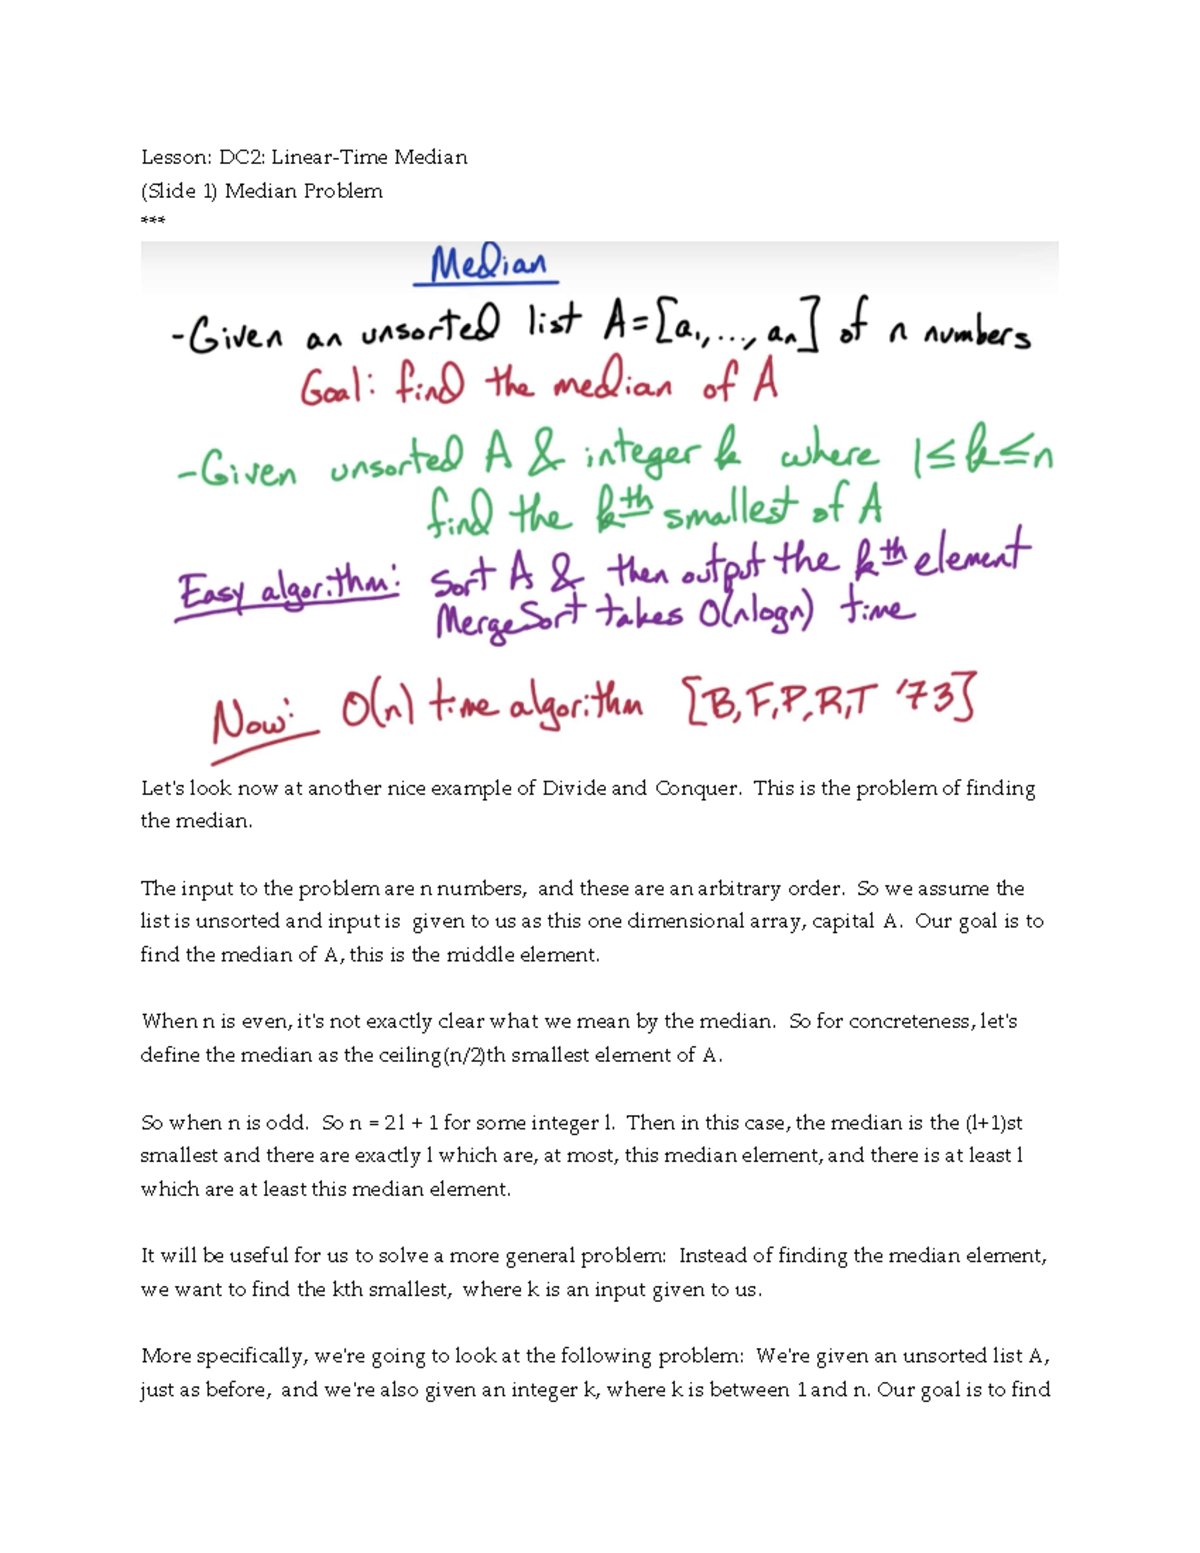 Lesson: DC2: Linear-Time Median
(Slide 1) Median Problem
***
Median
-Given an unsorted list A=[a₁,...,aₙ] of n numbers
Goal: find the median of A
-Given unsorted A & integer k where 1≤k≤n
find the kth smallest of A
Easy algorithm: Sort A & then output the kth element
MergeSort takes O(nlogn) time
Now: O(n) time algorithm [B,F,P,R,T '73]
Let's look now at another nice example of Divide and Conquer. This is the problem of finding
the median.
The input to the problem are n numbers, and these are an arbitrary order. So we assume the
list is unsorted and input is given to us as this one dimensional array, capital A. Our goal is to
find the median of A, this is the middle element.
When n is even, it's not exactly clear what we mean by the median. So for concreteness, let's
define the median as the ceiling(n/2)th smallest element of A.
So when n is odd. So n = 2l + 1 for some integer l. Then in this case, the median is the (l+1)st
smallest and there are exactly l which are, at most, this median element, and there is at least l
which are at least this median element.
It will be useful for us to solve a more general problem: Instead of finding the median element,
we want to find the kth smallest, where k is an input given to us.
More specifically, we're going to look at the following problem: We're given an unsorted list A,
just as before, and we're also given an integer k, where k is between 1 and n. Our goal is to find